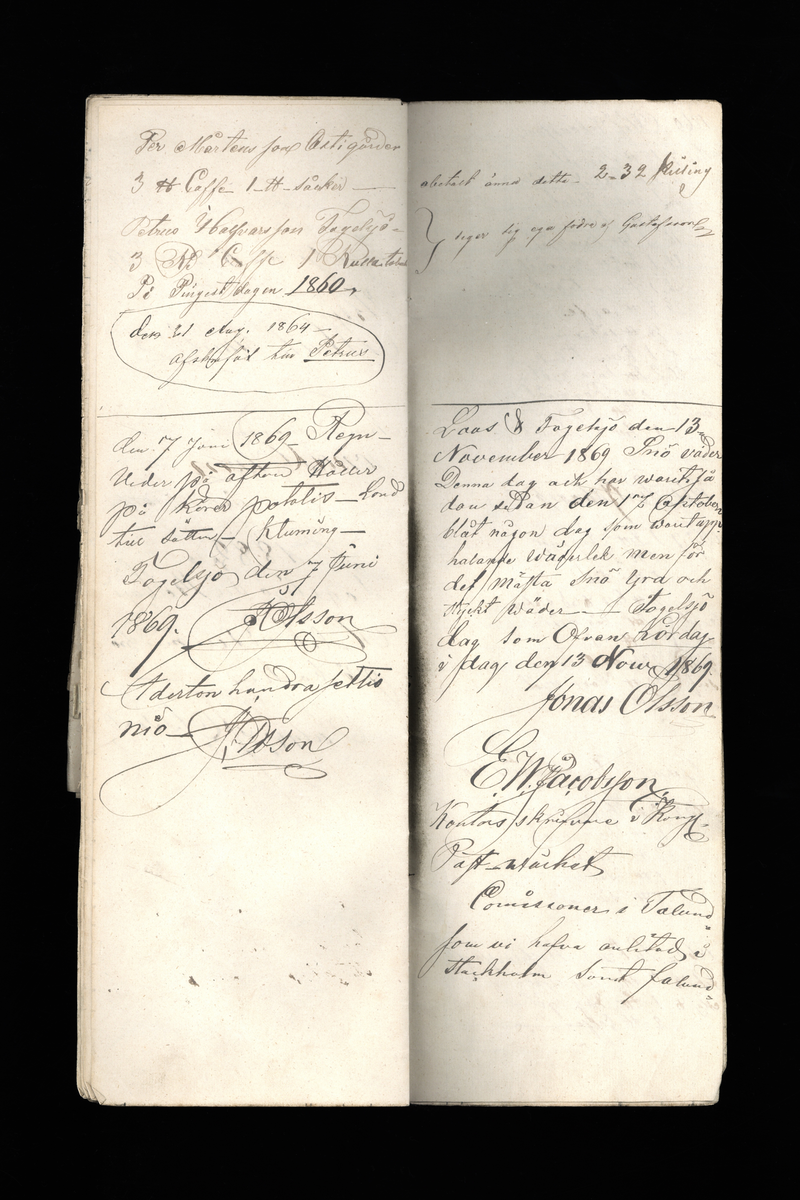 Per Mårtens son Östigården
3 ℔ Caffe 1 ℔ såcker
Petrus Halfvarsson Fogelsjö
3 Caffe 1 Rulla tobak
På Pingest dagen 1860,
den 21 Aug. 1864
afskrifvit till Petrus
den 7 Juni 1869 Regn
Veder på afton Håller
på köred potatis Land
till sätten Klumång
Fogelsjö den 7 Juni
1869. J Olsson
Aderton hundra settio
nio J, Olson
abetalt ännu dette 2-32 skiling
siger sig ega fodra af Gustafsson
Loos & Fogelsjö den 13
November 1869 Snö väder
Denna dag och har warit så
dan sedan den 17 Oktober
blåt någon dag som warit upp
halande wäderlek men för
det mästa Snö Yra och
styckt wäder Fogelsjö
dag som Ofvan Lördag
i dag den 13 Nowe 1869.
Jonas Olsson
E. W. Jacobsson
Kontors skrifvare i Kongl
Post-wächet
Comissoner i Falund
som vi hafva anlitad i
Stackholm samt falund